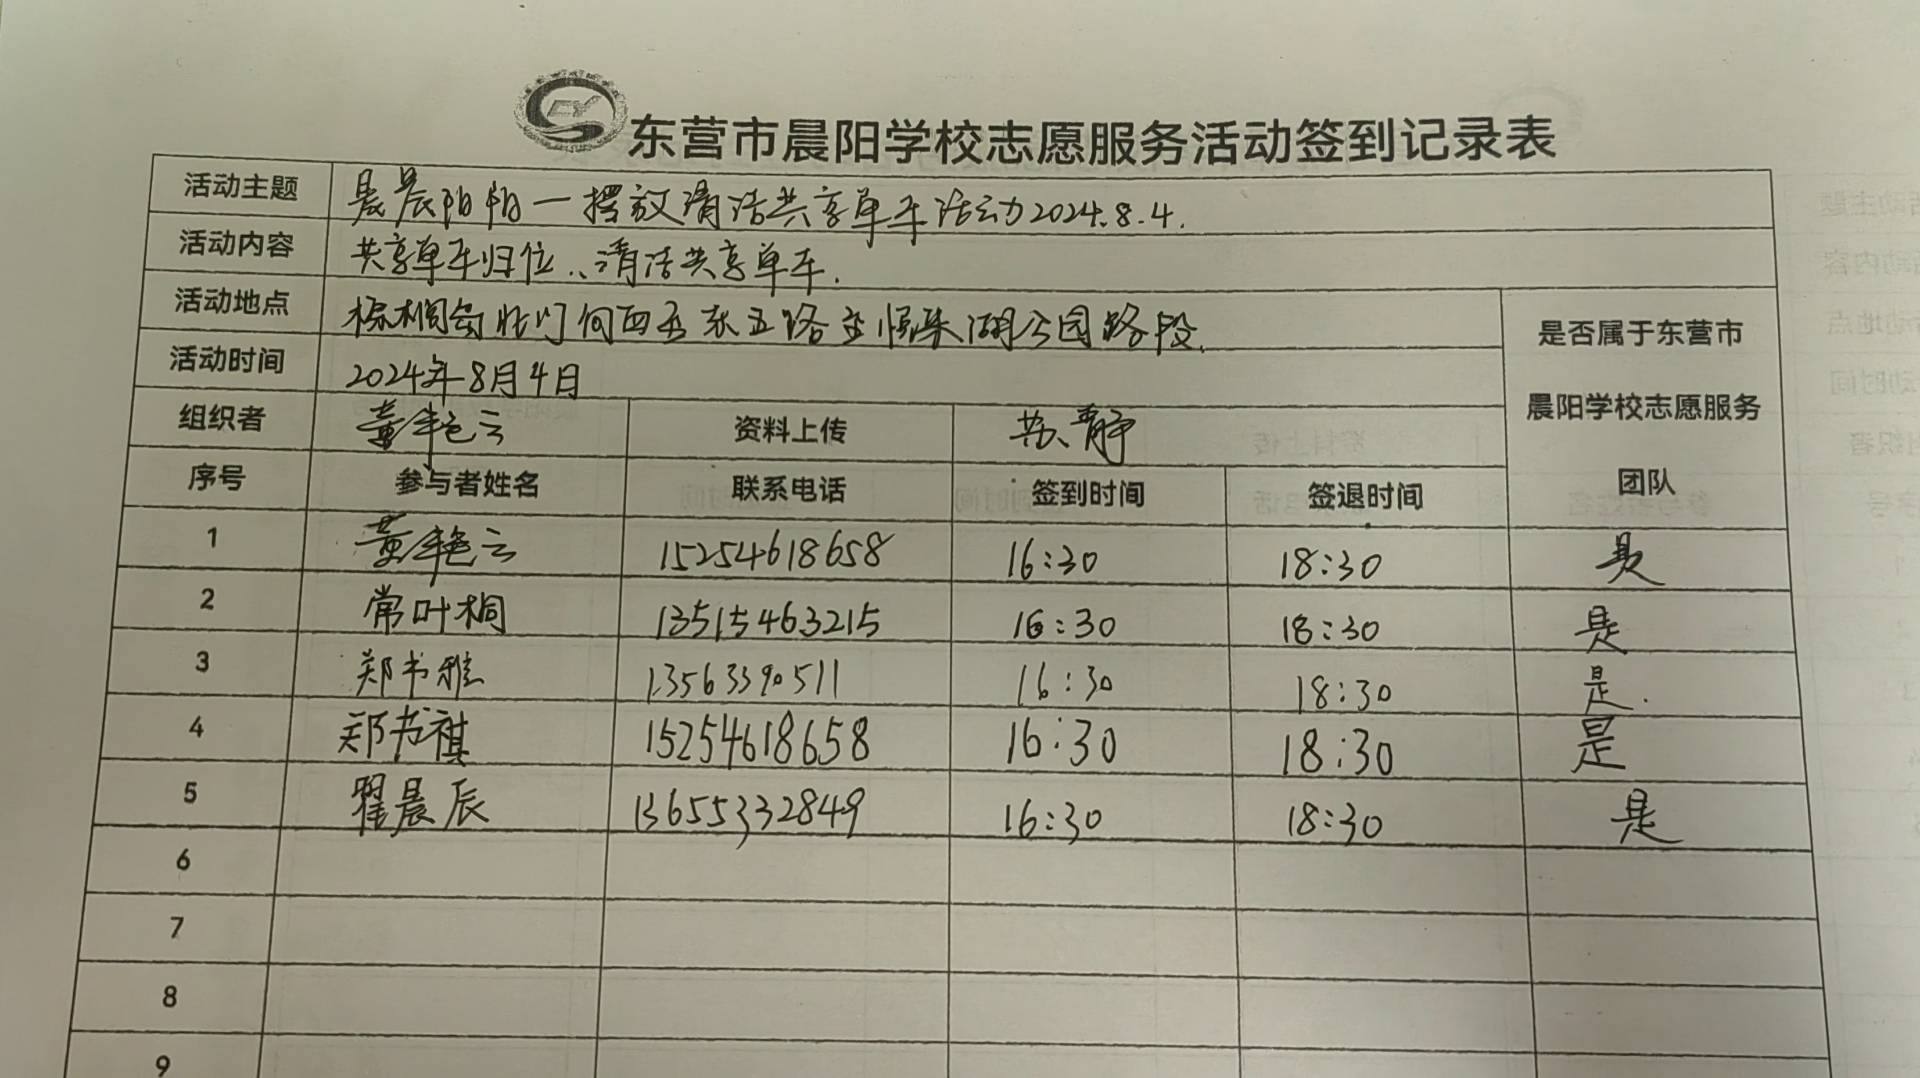 CY
东营市晨阳学校志愿服务活动签到记录表
活动主题 晨晨阳阳一摆放清洁共享单车活动2024.8.4.
活动内容 共享单车归位、清洁共享单车.
活动地点 棕榈岛北门向西至东五路至悦来湖公园路段.
活动时间 2024年8月4日
是否属于东营市
晨阳学校志愿服务
团队
组织者 黄艳云 资料上传 苏静
序号 参与者姓名 联系电话 签到时间 签退时间
1 黄艳云 15254618658 16:30 18:30 是
2 常叶桐 13515463215 16:30 18:30 是
3 郑书雅 13563390511 16:30 18:30 是.
4 郑书祺 15254618658 16:30 18:30 是
5 翟晨辰 13655332849 16:30 18:30 是
6
7
8
9